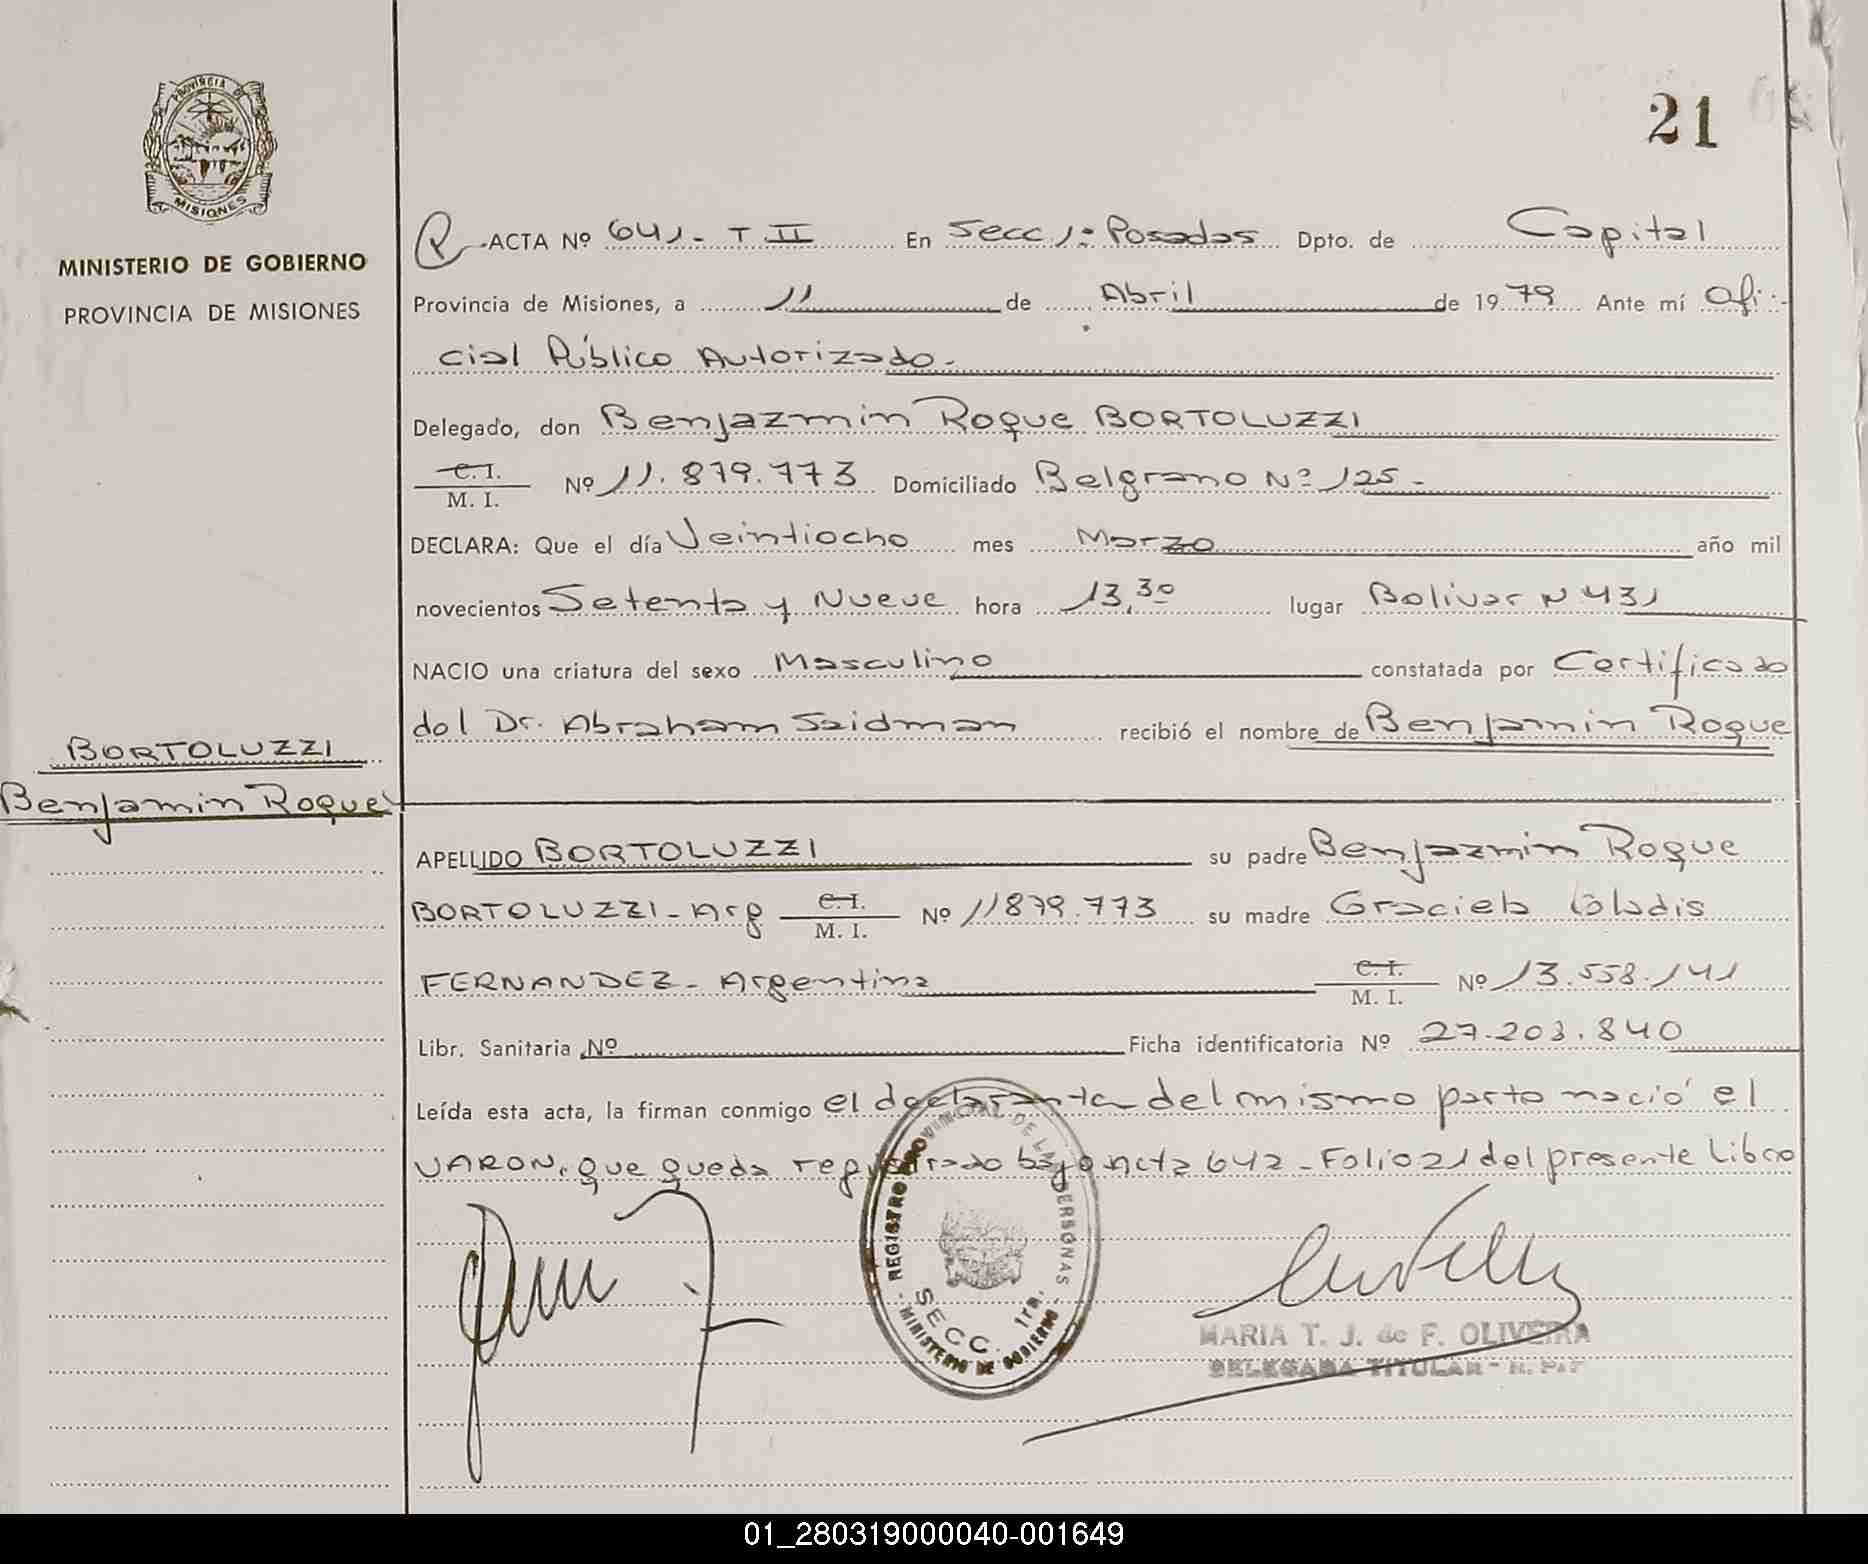 PROVINCIA DE
MISIONES
MINISTERIO DE GOBIERNO
PROVINCIA DE MISIONES
21
ACTA Nº 641 - T II En Secc 1ª Posadas Dpto. de Capital
Provincia de Misiones, a 11 de Abril de 1979 Ante mí Ofi-
cial Público Autorizado.
Delegado, don Benjazmin Roque BORTOLUZZI
C. I.
M. I. Nº 11.879.773 Domiciliado Belgrano Nº 125.
DECLARA: Que el día Veintiocho mes Marzo año mil
novecientos Setenta y Nueve hora 13,30 lugar Bolivar N 431
NACIO una criatura del sexo Masculino constatada por Certificado
del Dr. Abraham Saidman recibió el nombre de Benjamin Roque
BORTOLUZZI
Benjamin Roque
APELLIDO BORTOLUZZI su padre Benjazmin Roque
BORTOLUZZI - Arg C. I. M. I. Nº 11879.773 su madre Graciela Gladis
FERNANDEZ - Argentina C. I. M. I. Nº 13.558.141
Libr. Sanitaria Nº Ficha identificatoria Nº 27.203.840
Leída esta acta, la firman conmigo el declarante del mismo parto nació el
VARON. que queda registrado bajo Acta 642 - Folio 21 del presente Libro
REGISTRO PROVINCIAL DE LAS PERSONAS
SECC. 1ra.
- MINISTERIO DE GOBIERNO -
MARIA T. J. de F. OLIVEIRA
DELEGADA TITULAR - R. P. P
01_280319000040-001649